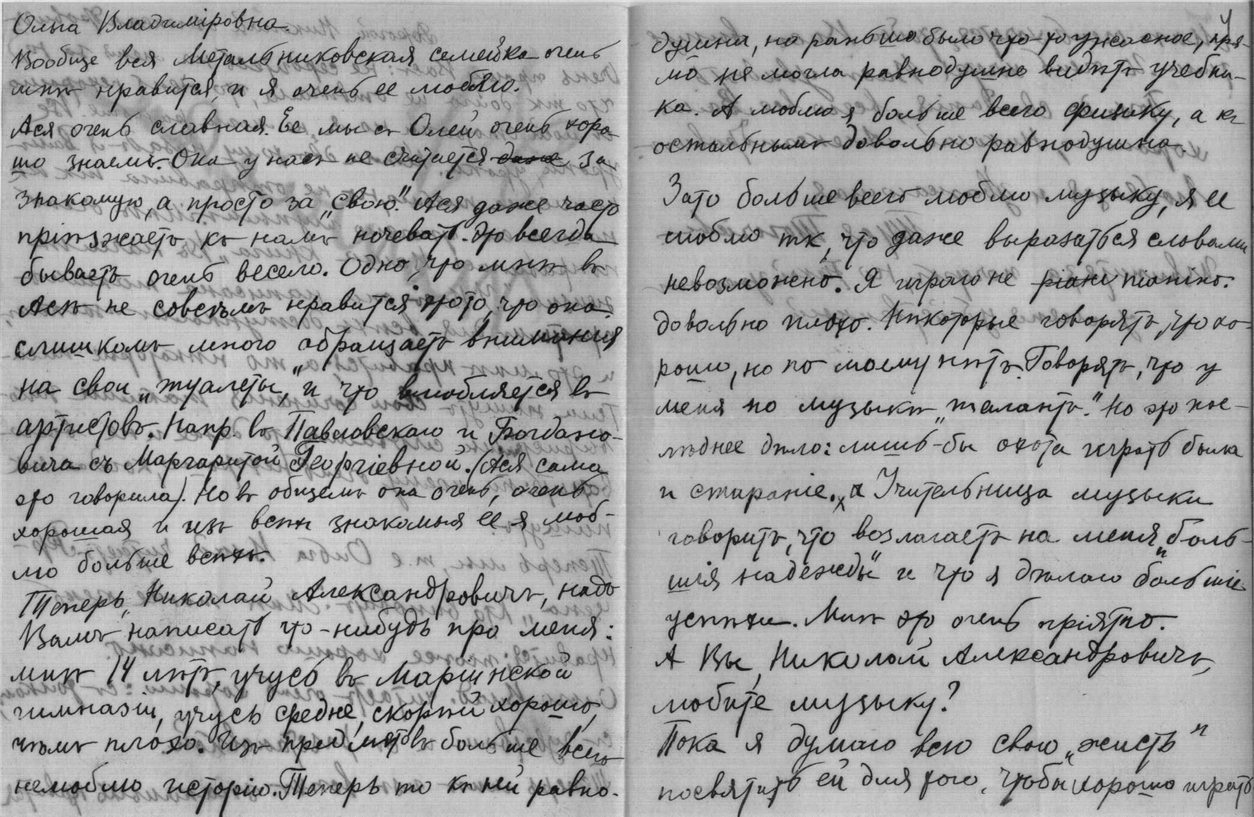 Ольга Владиміровна.
Вообще вся Метальниковская семейка очень
мнѣ нравится, и я очень ее люблю.
Ася очень славная. Ее мы съ Олей очень хоро-
шо знаемъ. Она у насъ не считается даже за
знакомую, а просто за „свою". Ася даже часто
пріѣзжаетъ къ намъ ночевать. Это всегда
бываетъ очень весело. Одно, что мнѣ въ
Асѣ не совсѣмъ нравится это то, что она
слишкомъ много обращаетъ вниманія
на свои „туалеты," и что влюбляется въ
артистовъ. Напр. въ Павловскаго и Богдано-
вича съ Маргаритой Георгіевной. (Ася сама
это говорила). Но въ общемъ она очень, очень
хорошая и изъ всѣхъ знакомыя ее я люб-
лю больше всѣхъ.
Теперь, Николай Александровичъ, надо
Вамъ написать что-нибудь про меня:
мнѣ 14 лѣтъ, учусь въ Маріинской
гимназіи, учусь средне, скорѣй хорошо,
чѣмъ плохо. Изъ предметовъ больше всего
нелюблю исторію. Теперь то къ ней равно-
4
душна, но раньше было что-то ужасное, пря-
мо не могла равнодушно видѣть учебни-
ка. А люблю я больше всего физику, а къ
остальнымъ довольно равнодушна.
Зато больше всего люблю музыку, я ее
люблю так, что даже выразаться словами
невозможно. Я играю на рояли піанино.
довольно плохо. Нѣкоторые говорятъ, что хо-
рошо, но по моему нѣтъ. Говорятъ, что у
меня по музыкѣ „талантъ". Но это пос-
лѣднее дѣло: лишь-бы охота играть была
и стараніе. Учительница музыки
говоритъ, что возлагаетъ на меня „боль-
шія надежды" и что я дѣлаю большіе
успѣхи. Мнѣ это очень пріятно.
А Вы, Николай Александровичъ,
любите музыку?
Пока я думаю всю свою „жисть"
посвятить ей для того, чтобы хорошо играть